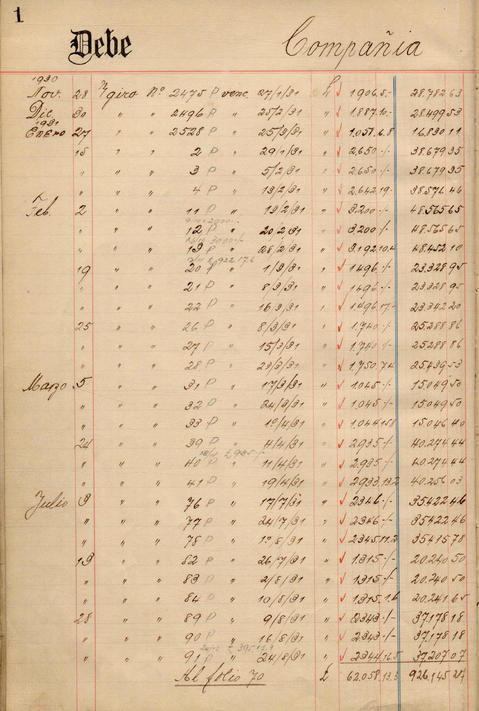 1
Debe Compañia
1930
Nov. 28 giro Nº 2475 P venc. 27/1/31 £ 1906.5.- 28.782 63
Dic. 30 " " 2496 P " 25/2/31 " 1.887.10.- 28.499 53
1931
Enero 27 " " 2528 P " 25/3/31 " 1.051.6.8 16.830 11
15 " " 2 P " 29/1/31 " 2.650.-/- 38.679 35
" " " 3 P " 5/2/31 " 2.650.-/- 38.679 35
" " " 4 P " 13/2/31 " 2.642.19.- 38.576.46
Feb. 2 " " 11 P " 13/2/31 " 3.200.-/- 48.565 65
" " " 12 P " 20/2/31 " 3.200.-/- 48.565 65
" " " 13 P " 28/2/31 " 3.192.10.4 48.452 10
19 " " 20 P " 1/3/31 " 1.496.-/- 23.328 95
" " " 21 P " 8/3/31 " 1.496.-/- 23.328 95
" " " 22 P " 16/3/31 " 1.496.17.- 23.342 20
25 " " 26 P " 8/3/31 " 1.740.-/- 25.288 86
" " " 27 P " 15/3/31 " 1.740.-/- 25.288 86
" " " 28 P " 23/3/31 " 1.750.7.4 25.439 53
Marzo 5 " " 31 P " 17/3/31 " 1.045.-/- 15.049 50
" " " 32 P " 24/3/31 " 1.045.-/- 15.049 50
" " " 33 P " 1º/4/31 " 15.046 40
24 " " 39 P " 4/4/31 " 2.935.-/- 40.274 44
" " " 40 P " 11/4/31 " 2.935.-/- 40.274 44
" " " 41 P " 19/4/31 " 2.933.13.2 40.256 03
Julio 3 " " 76 P " 17/7/31 " 2.346.-/- 35.422 46
" " " 77 P " 24/7/31 " 2.346.-/- 35.422 46
" " " 78 P " 1º/8/31 " 2.345.11.2 35.415 78
13 " " 82 P " 26/7/31 " 1.315.-/- 20.240 50
" " " 83 P " 2/8/31 " 1.315.-/- 20.240 50
" " " 84 P " 10/8/31 " 1.315.1.6 20.241 65
28 " " 89 P " 9/8/31 " 2.343.-/- 37.178 18
" " " 90 P " 16/8/31 " 2.343.-/- 37.178 18
" " " 91 P " 24/8/31 " 2.344.16.5 37.207 07
Al folio 70 £ 62.058.13.3 926.145 27